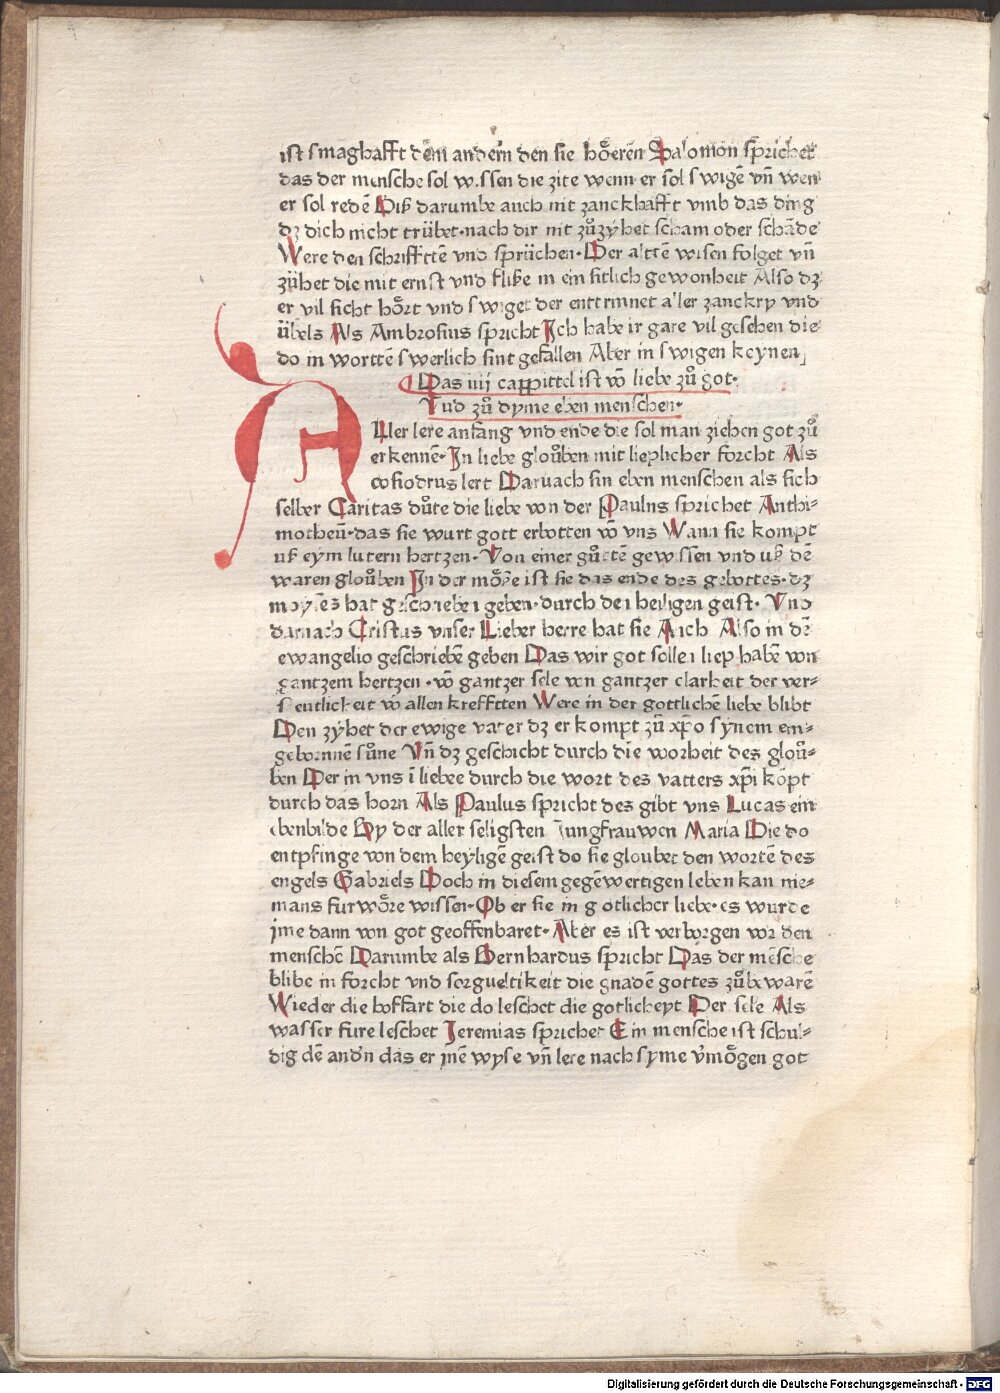 ist smaghafft dem andern den sie hoͤeren Salomon sprichet
das der mensche sol wissen die zite wenn er sol swigē vn̄ wen
er sol redē Diß darumbe auch nit zanckhafft vmb das ding
dz dich nicht truͤbet·nach dir nit zuͦzyhet scham oder schāde
Were den schrifftē vnd spruͤchen·Der altē wisen folget vn̄
zuͤhet die mit ernst vnd fliße in ein sitlich gewonheit Also dz
er vil sicht hoͤrt vnd swiget der enttrinnet aller zanckry vnd
uͤbels Als Ambrosius spricht Ich habe ir gare vil gesehen die
do in wortē swerlich sint gefallen Aber in swigen keynen
Das iiij cappittel ist vō liebe zuͦ got·
Vnd zuͦ dyme eben menschen·
ALler lere anfang vnd ende die sol man ziehen got zuͦ
erkennē·In liebe glouͦben mit lieplicher forcht Als
cosiodrus lert Daruach sin eben menschen als sich
selber Caritas duͦte die liebe von der Paulns sprichet Anthi-
motheū·das sie wurt gott erbotten vō vns Wann sie kompt
uß eym lutern hertzen·Von einer guͦtē gewissen vnd uß dē
waren glouͦben In der moͤße ist sie das ende des gebottes·dz
moyses hat geschriebe geben·durch den heiligen geist·Vnd
darnach Cristus vnser Lieber herre hat sie Auch Also in dr̄
ewangelio geschriebē geben Das wir got sollen liep habē von
gantzem hertzen·vō gantzer sele von gantzer clarheit der ver-
stentlicheit vō allen krefftten Were in der gottlichē liebe blibt
Den zyhet der ewige vater dz er kompt zuͦ xp̄o synem ein-
gebornnē suͦne Vn̄ dz geschicht durch die worheit des glouͦ-
ben Der in vns ī liebee durch die wort des vatters xp̄i kōpt
durch das horn Als Paulus spricht des gibt vns Lucas ein
ebenbilde By der aller seligsten Jungfrauwen Maria Die do
entpfinge von dem heyligē geist do sie gloubet den wortē des
engels Gabriels Doch in diesem gegēwertigen leben kan nie-
mans furwoͤre wissen·Ob er sie in gotlicher liebe·es wurde
ime dann von got geoffenbaret·Aber es ist verborgen vor den
menschē Darumbe als Bernhardus spricht Das der mēsche
blibe in forcht vnd sorgueltikeit die gnadē gottes zuͦbewarē
Wieder die hoffart die do leschet die gotlicheyt Der sele Als
wasser fure leschet Jeremias sprichet Ein mensche ist schul-
dig dē and'n das er inē wyse vn̄ lere nach syme v'moͤgen got
Digitalisierung gefördert durch die Deutsche Forschungsgemeinschaft - DFG